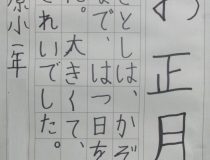 お正月
ことしは、かぞ
くで、はつ日を
た。大きくて、
きれいでした。
原小一年